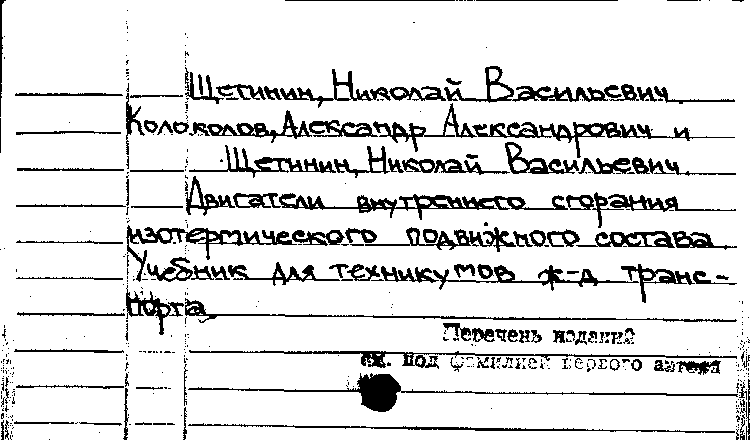 Щетинин, Николай Васильевич.
Колоколов, Александр Александрович и
Щетинин, Николай Васильевич.
Двигатели внутреннего сгорания
изотермического подвижного состава.
Учебник для техникумов ж-д транс-
порта.
Перечень изданий
см. под фамилией первого автора